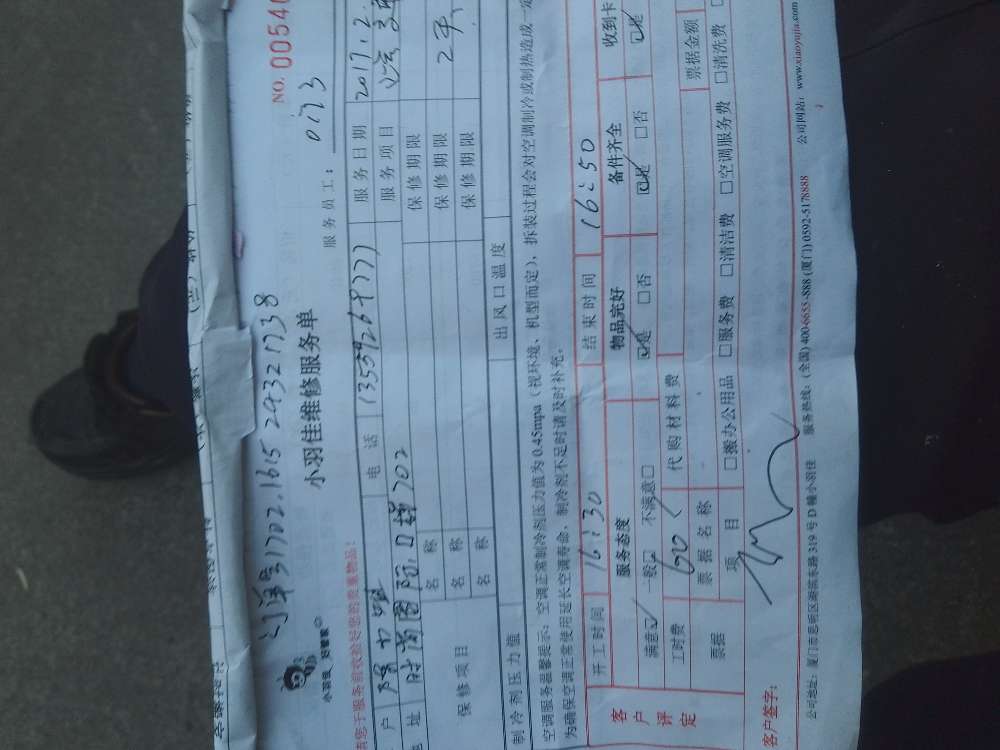 订单号31702.1615 2932 1738
NO. 00540
小羽佳 好管家
小羽佳维修服务单
服务员工: 0173
请您于服务前收捡好您的贵重物品!
户
电 话 13559268777
服务日期 2017.12.
地 址 时尚国际 702
服务项目
保修项目
名 称
保修期限
名 称
保修期限 2年
名 称
保修期限
制冷剂压力值
出风口温度
空调服务温馨提示: 空调正常制冷剂压力值为 0.45mpa (视环境、机型而定), 拆装过程会对空调制冷或制热造成一定
为确保空调正常使用延长空调寿命, 制冷剂不足时请及时补充。
客户评定
开工时间 16:30
结束时间 16:50
服务态度
物品完好
备件齐全
收到卡
满意☑ 一般□ 不满意□
☑是 □否
☑是 □否
☑是
工时费 60
代购材料费
票据
票据名称
票据金额
项 目
□搬办公用品 □服务费 □清洁费 □空调服务费 □清洗费
客户签字:
公司地址: 厦门市思明区湖滨东路 319 号 D 幢小羽佳 服务热线: (全国) 400-6655-888 (厦门) 0592-5178888 公司网站: www.xiaoyujia.com